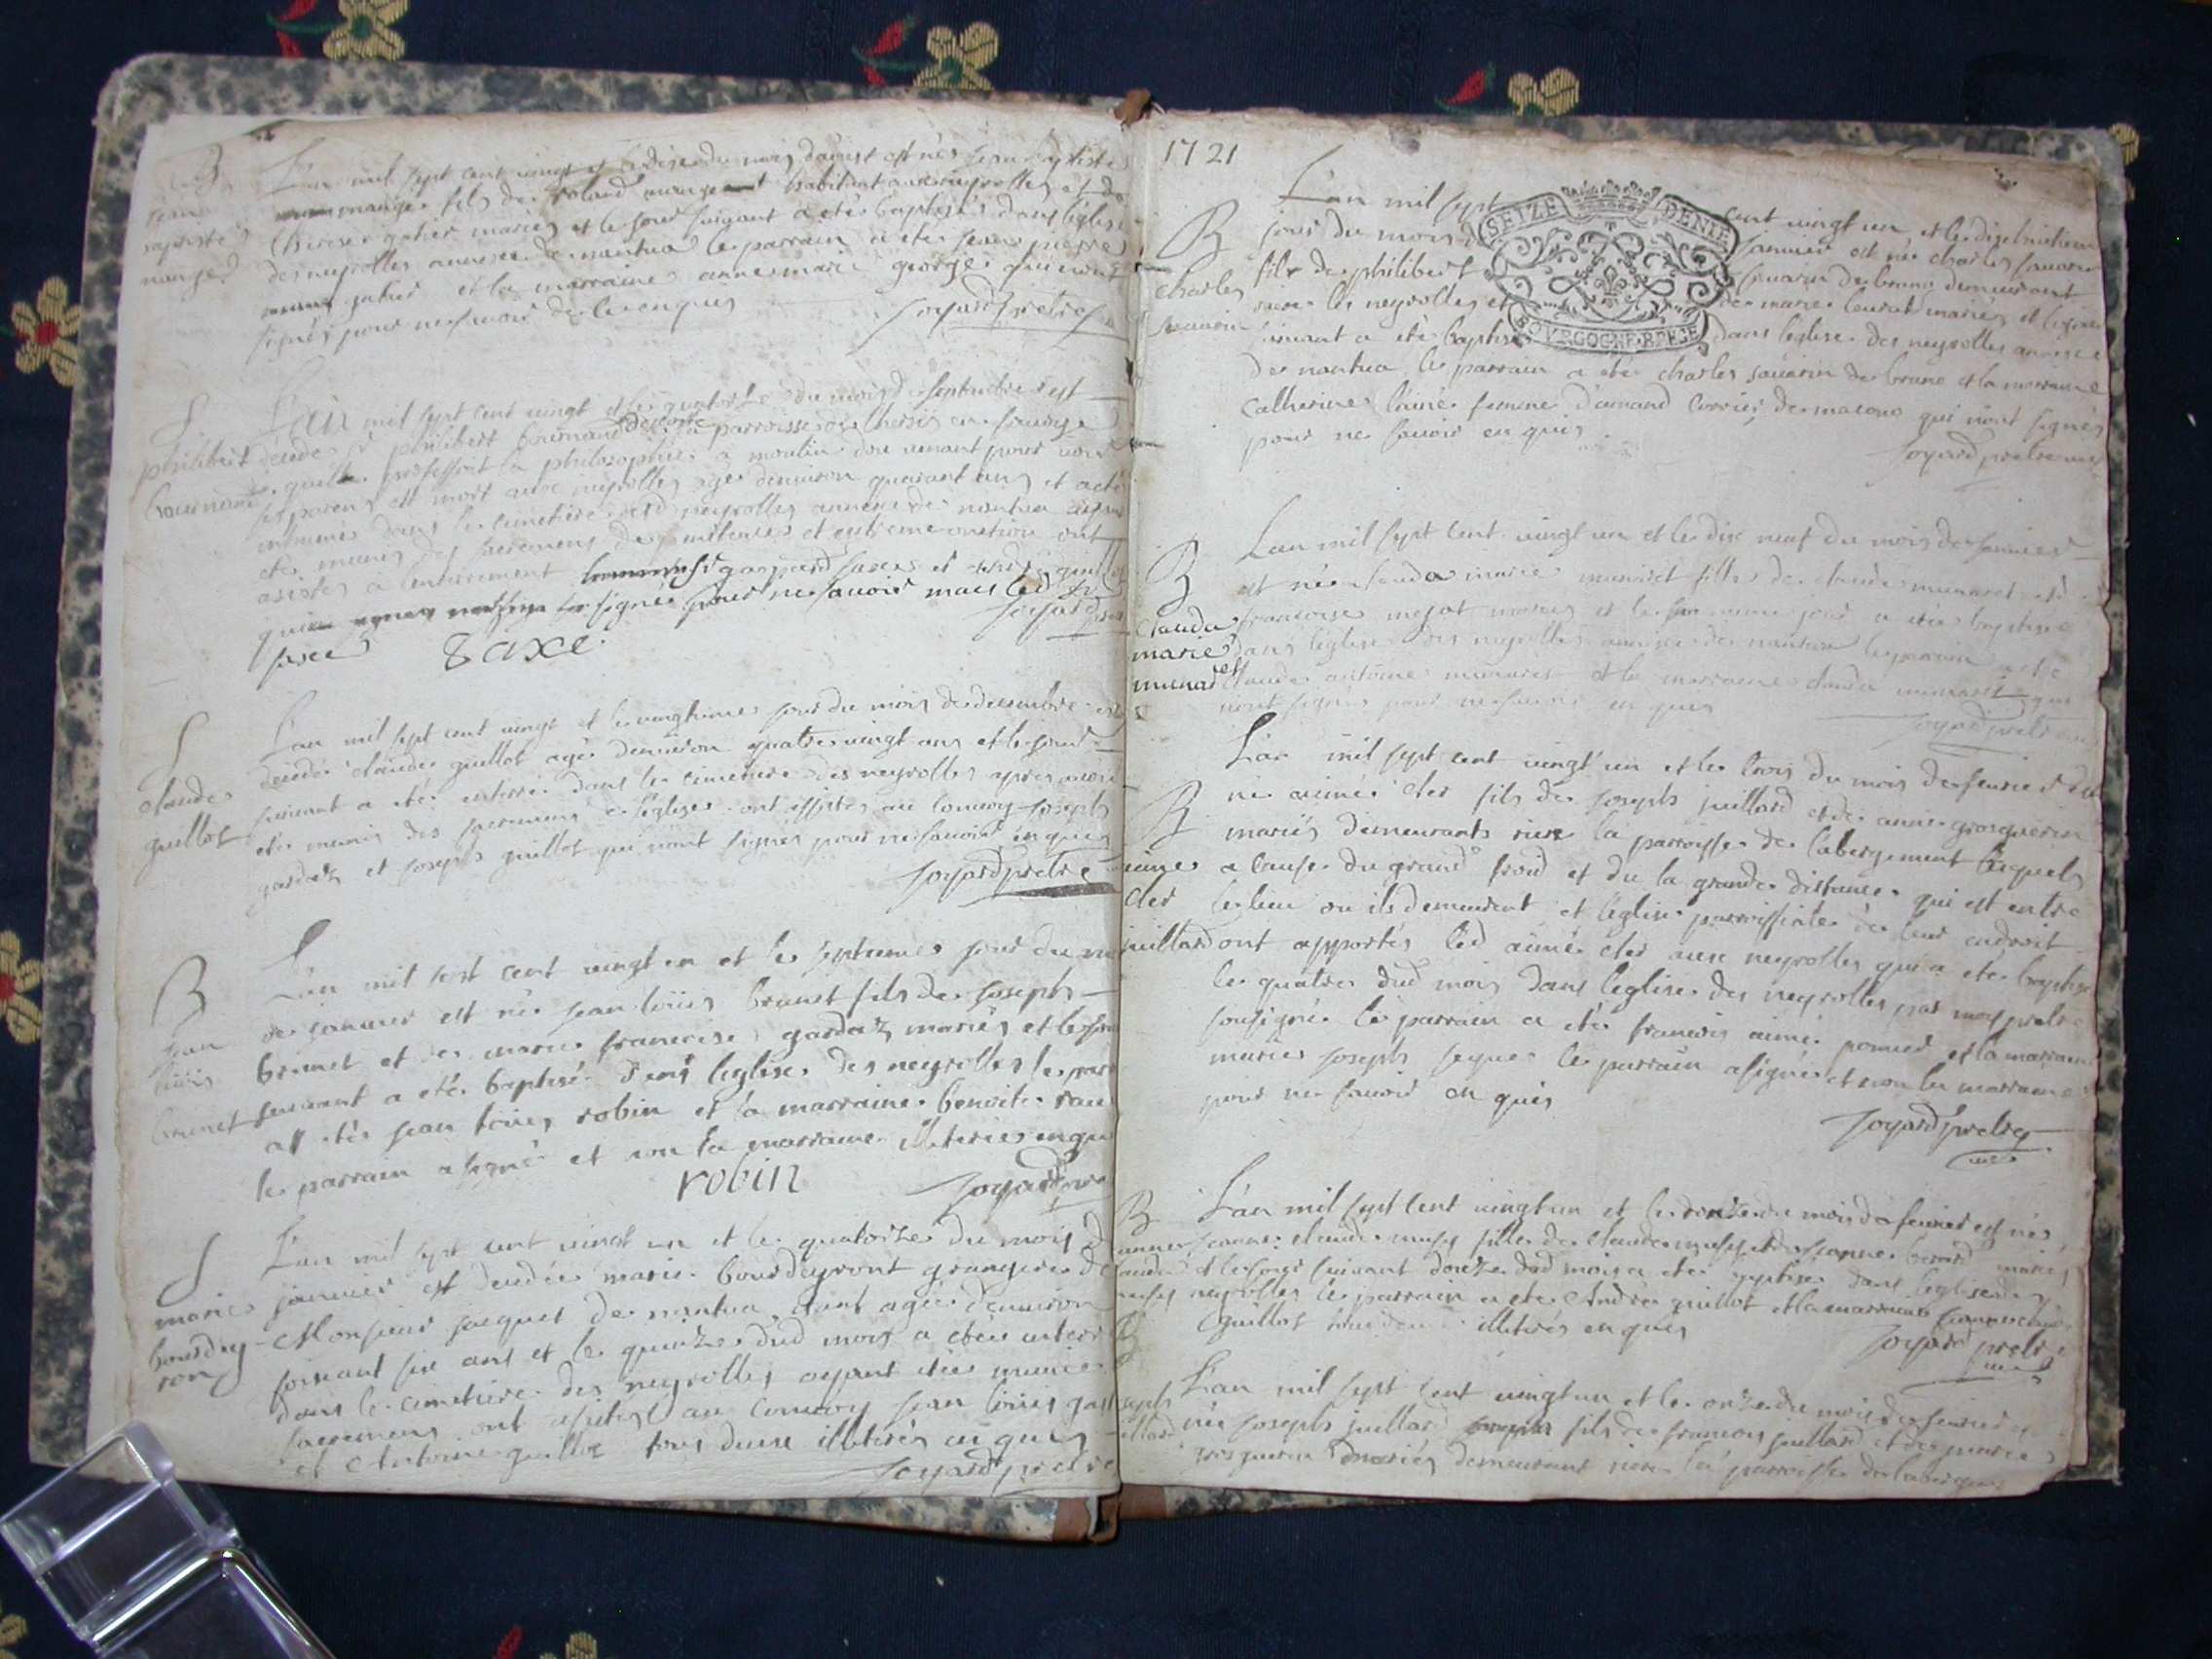 B
jean
baptiste
manget
L'an mil sept cent vingt et le dixe du mois d'aoust est né jean baptiste
manget fils de roland manget habitant aux neyrolles et de
gather mariés et le jour suivant a eté baptisé dans l'eglise
des neyrolles annexe de nantua le parrain a eté jean pierre
gather et la marraine anne marie george qui n'ont
signés pour ne savoir de ce enquis
Joyard pretre
S
philibert
bournand
L'an mil sept cent vingt et le quatorze du mois de septembre est
decedé sr philibert bournand de la parroisse de en savoye
professoit la philosophie a moulin d'ou venant pour voir
ses parens est mort aux neyrolles agé d'environ quarant ans et a eté
inhumé dans le cimetiere des neyrolles annexe de nantua ayant
eté munis des sacremens de penitence et extreme onction ont
asistés a l'enterrement sr gaspard et guillot
signé pour ne savoir mais led sr
Joyard
saxe
S
claude
guillot
L'an mil sept cent vingt et le vingtieme jour du mois de decembre est
decedé claude guillot agé d'environ quatre vingt ans et le jour
suivant a eté enterré dans le cimetiere des neyrolles apres avoir
eté munis des sacremens de l'eglise ont assistés au convoy joseph
gardaz et joseph guillot qui n'ont signés pour ne savoir enquis
Joyard pretre
B
jean
loüis
brunet
L'an mil sept cent vingt un et le septieme jour du mois
de janvier est né jean loüis brunet fils de joseph
brunet et de marie francoise gardaz mariés et le jour
suivant a eté baptisé dans l'eglise des neyrolles le parr
a eté jean loüis robin et la marraine benoite
le parrain a signé et non la marraine illiterée enqu
robin Joyard pre
S
marie
bourdey-
ron
L'an mil sept cent vingt un et le quatorze du mois d
janvier est decedée marie bourdeyront grangere de
Monsieur jacquet de nantua, etant agée d'environ
soixant six ans et le quinze dud mois a etée enterr
dans le cimetiere des neyrolles ayant etée munie
sacremens ont assistés au convoy jean loüis gar
et Antoine guillot tous deux illiterés enquis
Joyard pretre
1721
SEIZE DENIE
BOVRGOGNE BRECE
B
charles
sauarin
L'an mil sept cent vingt un et le dixhuitieme
jour du mois de janvier est né charles sauarin
fils de philibert sauarin de brune demeurant
riere les neyrolles et de marie leurat mariés et le jour
suivant a eté baptisé dans l'eglise des neyrolles annexe
de nantua, le parrain a eté charles sauarin de brune et la marraine
Catherine femme d'amand de macono qui n'ont signés
pour ne savoir enquis
Joyard pretre
B
Claude
marie
munaret
L'an mil sept cent vingt un et le dix neuf du mois de janvier
est née claude marie munaret fille de claude munaret et de
francoise mejat mariés et le meme jour a etée baptisée
dans l'eglise des neyrolles annexe de nantua le parrain a eté
claude antoine munaret et la marraine claude munaret qui
n'ont signés pour ne savoir enquis
Joyard pretre
B
aimé
cler
juillard
L'an mil sept cent vingt un et le trois du mois de fevrier est
né aimé cler fils de joseph juillard et de anne grosguerin
mariés demeurants riere la parroisse de l'abergement lesquels
a cause du grand froid et de la grande distance qui est entre
le lieu ou ils demeurent et l'eglise parroissiale de leur endroit
ont apportés led aimé cler aux neyrolles qui a eté baptisé
le quatre dud mois dans l'eglise des neyrolles par moy pretre
sousigné le parrain a eté francois aimé pomier et la marraine
marie joseph le parrain a signé et non la marraine
pour ne savoir enquis
Joyard pretre
B
jeanne
claude
mussy
L'an mil sept cent vingt un et le onze du mois de fevrier est née
jeanne claude mussy fille de claude mussy et de jeanne berard mariés
et le jour suivant douze dud mois a eté baptisée dans l'eglise des
neyrolles le parrain a eté André guillot et la marraine jeanne claude
guillot tous deux illiterés enquis
Joyard pretre
B
joseph
juillard
L'an mil sept cent vingt un et le onze du mois de fevrier est
né joseph juillard fils de francois juillard et de marie
grosguerin mariés demeurant riere la parroisse de l'abergement